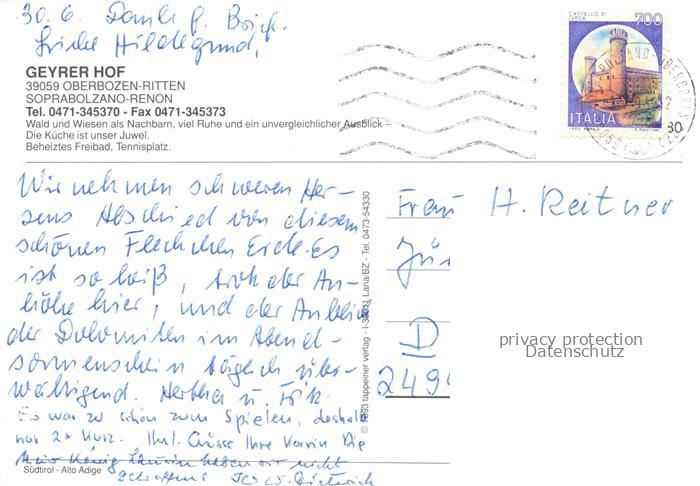 30.6. Dank f. Brief.
Liebe Hildegund,
GEYRER HOF
39059 OBERBOZEN-RITTEN
SOPRABOLZANO-RENON
Tel. 0471-345370 - Fax 0471-345373
Wald und Wiesen als Nachbarn, viel Ruhe und ein unvergleichlicher Ausblick –
Die Küche ist unser Juwel.
Beheiztes Freibad, Tennisplatz.
CASTELLO DI
IVREA
700
ITALIA
Wir nehmen schweren Her-
zens Abschied von diesem
schönen Fleckchen Erde. Es
ist so heiß, trotz der An-
höhe hier, und der Anblick
der Dolomiten im Abend-
sonnenschein täglich über-
wältigend. Hertha u.
Es war zu schön zum Spielen, deshalb
nur 2x kurz. Grüsse Ihre Karin Die
nicht
geschafft Dietrich
Südtirol - Alto Adige
© 1993 tappeiner verlag - Lana/BZ - Tel. 0473-54330
Frau H. Reitner
D
249
privacy protection
Datenschutz